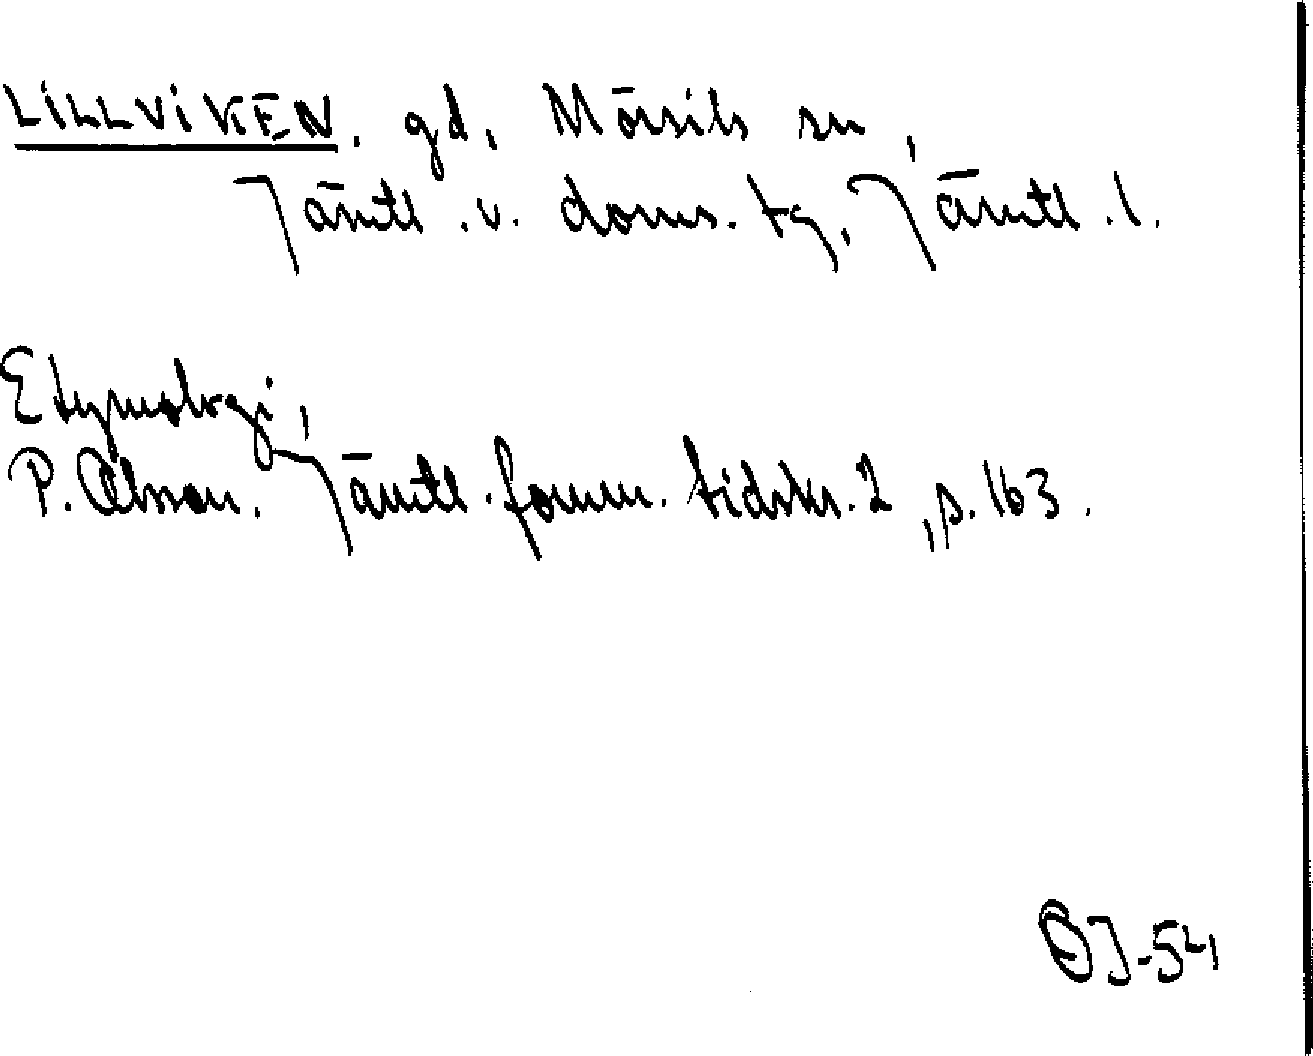 LILLVIKEN. gd, Mörsils sn,
Jämtl. v. doms. tg, Jämtl. l.
Etymologi,
P. Olsson. Jämtl. fornm. tidskr. 2, s. 163.
ÖJ-54